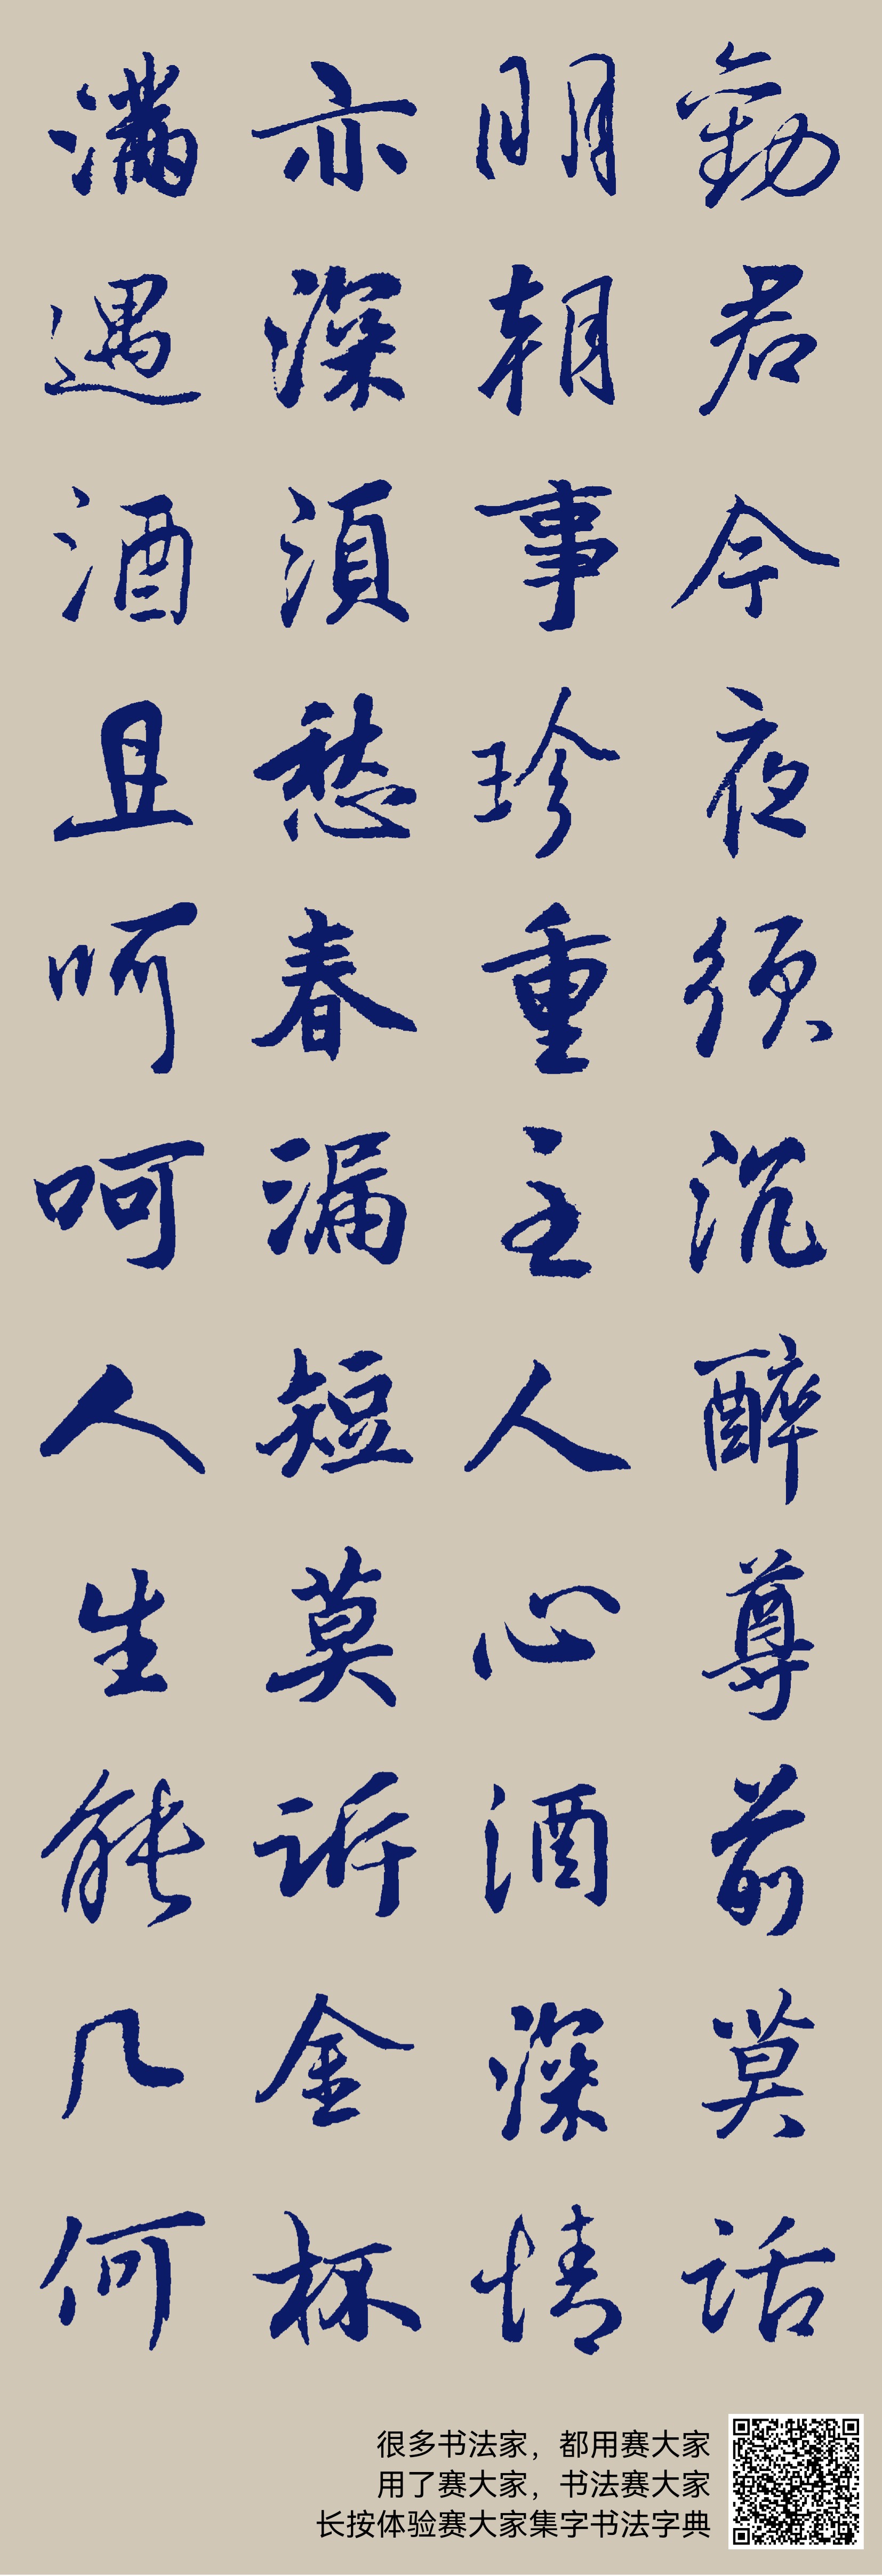 勸君今夜须沉醉尊前莫话
明朝事珍重主人心酒深情
亦深須愁春漏短莫訴金杯
滿遇酒且呵呵人生能几何
很多书法家，都用赛大家
用了赛大家，书法赛大家
长按体验赛大家集字书法字典